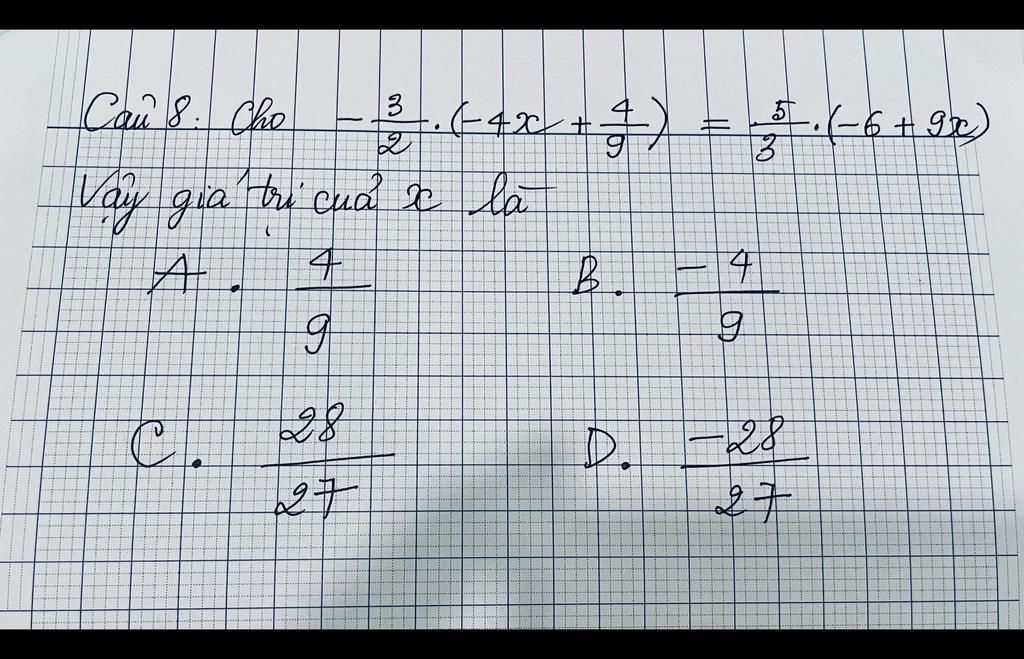 Câu 8: Cho -3/2.(-4x + 4/9) = 5/3.(-6 + 9x)
Vậy giá trị của x là
A. 4/9 B. -4/9
C. 28/27 D. -28/27